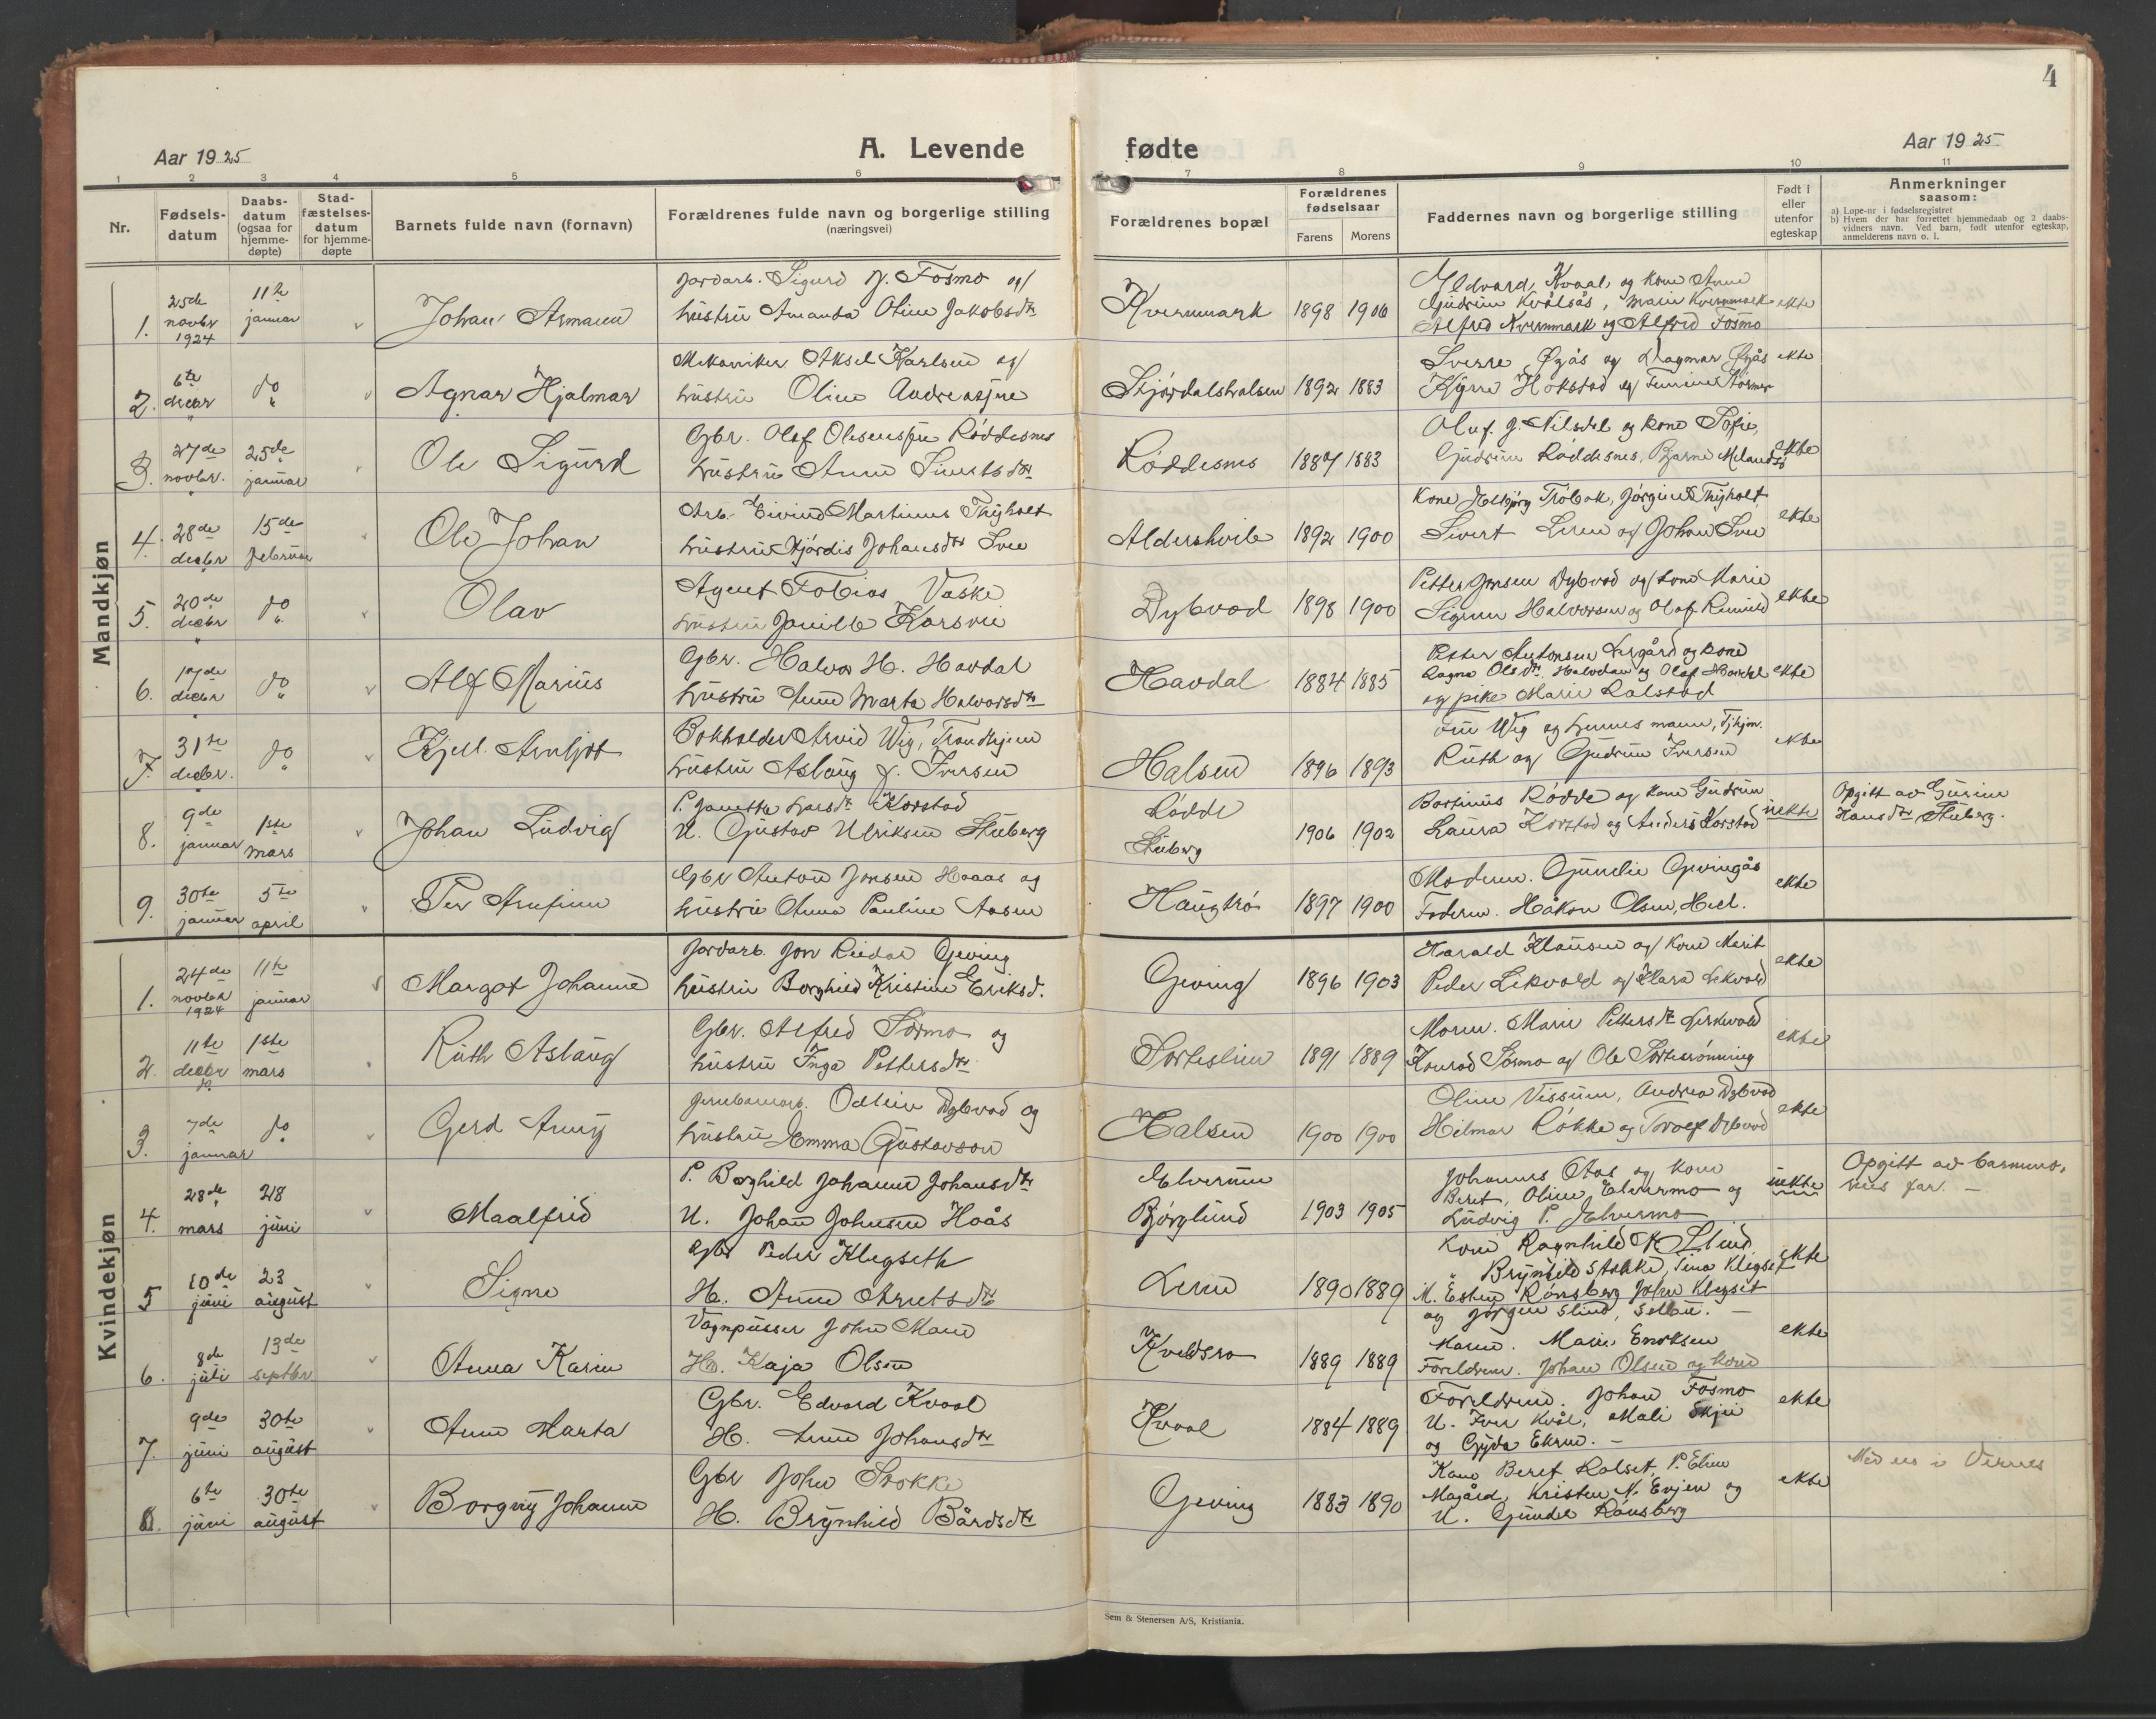 4
Aar 1925
A. Levende
fødte
Aar 1925
1 2 3 4 5 6 7 8 9 10 11
Nr.
Fødsels-
datum
Daabs-
datum
(ogsaa for
hjemme-
døpte)
Stad-
fæstelses-
datum
for hjemme-
døpte
Barnets fulde navn (fornavn)
Forældrenes fulde navn og borgerlige stilling
(næringsvei)
Forældrenes bopæl
Forældrenes
fødselsaar
Farens Morens
Faddernes navn og borgerlige stilling
Født i
eller
utenfor
egteskap
Anmerkninger
saasom:
a) Løpe-nr i fødselsregistret
b) Hvem der har forrettet hjemmedaab og 2 daabs-
vidners navn. Ved barn, født utenfor egteskap,
anmelderens navn o. l.
Mandkjøn
1.
25de
novbr
1924
11te
januar
Johan Armann
Jordarb. Sigurd J. Fosmo og
hustru Amanda Oline Jakobsdtr
Kvernmark 1898 1906
Edvard Kvaal og kone Anne
Gudrun Kvålsås, Marie Kvernmark
Alfred Kvernmark og Alfred Fosmo
ekte
2.
6te
decbr
do
Agnar Hjalmar
Mekaniker Aksel Karlsen og
hustru Oline Andreasine
Stjørdalshalsen 1892 1883
Sverre Øgås og Dagmar Øgås
Hokstad og
ekte
3.
27de
novbr.
25de
januar
Ole Sigurd
Gbr. Olaf Røddesnes
hustru Anne
Røddesnes 1887 1883
Oluf J. og kone Sofie,
Gudrun Røddesnes, Bjarne
ekte
4.
28de
decbr
15de
februar
Ole Johan
Arb. Eivind Martinus Thyholt
hustru Hjørdis Johansdtr Sve
Aldershvile 1892 1900
Kone Trøbak, Jørgine Thyholt
Sivert Leren og Johan Sve
ekte
5.
20de
decbr
do
Olav
Agent Tobias Vaske
hustru Karsvie
Dybvad 1898 1900
Petter Jonsen Dybvad og kone Marie
Signe Halvorsen og Olaf
ekte
6.
17de
decbr
do
Alf Marius
Gbr. Halvor H. Havdal
hustru Anne Marta Halvorsdtr
Havdal 1884 1885
Petter Antonsen og kone
Ragna Olsdtr, og Olaf Havdal
og pike Marie Ralstad
ekte
7.
31te
decbr.
do
Kjell Arnljot
Bokholder Arvid Wig, Trondhjem
hustru Aslaug f. Iversen
Halsen 1896 1893
Wig og hennes mann, Tjhjm.
Ruth og Gudrun Iversen
ekte
8.
9de
januar
1ste
mars
Johan Ludvig
P. Janetta Larsdtr Korstad
U. Gustav Ulriksen Stuberg
Rødde
Stuberg
1906 1902
Bortinus Rødde og kone Gudrun
Laura Korstad og Anders Korstad
uekte
Opgitt av Gurine
Hansdtr Stuberg.
9.
30te
januar
5te
april
Per Arnfinn
Gbr Anton Jonsen Haaas og
hustru Anna Pauline Aasen
Haugtrø 1897 1900
Moderen. Gunelie Gevingås
Faderen. Håkon Olsen, Hell.
ekte
Kvindekjøn
1.
24de
novbr
1924
11te
januar
Margot Johanne
Jordarb. Jon Reidar Geving
hustru Borghild Kristine Eriksd.
Geving 1896 1903
Harald Klausen og kone Marit
Peder Lekvold og Klara Lekvold
ekte
2.
11te
decbr
do
1ste
mars
Ruth Aslaug
Gbr. Alfred Sørmo og
hustru Inga Pettersdtr
Sorteslien 1891 1889
Moren. Marie Pettersdtr
Konrad Sørmo og Ole Sorterønning
ekte
3.
7de
januar
do
Gerd Anny
Jernbanearb. Dybvad og
hustru Emma Gustavson
Halsen 1900 1900
Oline Vissum, Andrea Dybvad
Hilmar Røkke og Torolf Dybvad
ekte
4.
28de
mars
28
juni
Maalfrid
P. Borghild Johanne Johansdtr
U. Johan Johnsen Hoås
Elverum
Bjørglund
1903 1905
Johannes Aas og kone
Beret, Oline Elvermo og
Ludvig P. Elvermo
uekte
Opgitt av barnets
far. —
5
10de
juni
23
august
Signe
Gbr Peder Klegseth
H. Anne Arntsdtr
Leren 1890 1889
Kone Ragnhild K Slind
" Brynhild Stokke, Tina Klegset
M. Esten Rønsberg John Klegset
og Jørgen Slind, Selbu. —
ekte
6.
8de
juli
13de
septbr.
Anna Karin
Vognpusser John Moen
H. Kaja Olsen
Kveldsro 1889 1889
Maren. Marie Enoksen
Foreldrene. Johan Olsen og kone
ekte
7.
9de
juni
30te
august
Anne Marta
Gbr. Edvard Kvaal
H. Anne Johansdtr
Kvaal 1884 1889
Foreldrene. Johan Fosmo
U. Iver Kvål, Mali Skjei
og Gyda Ekren. —
ekte
8.
6te
juni
30te
august
Borgny Johanne
Gbr John Stokke
H. Brynhild Bårdsdtr
Geving 1883 1890
Kone Beret Kolset, P. Elin
Mogård, Kristen N. Evjen og
U. Gunder Rønsberg
ekte
Sem & Stenersen A/S, Kristiania.